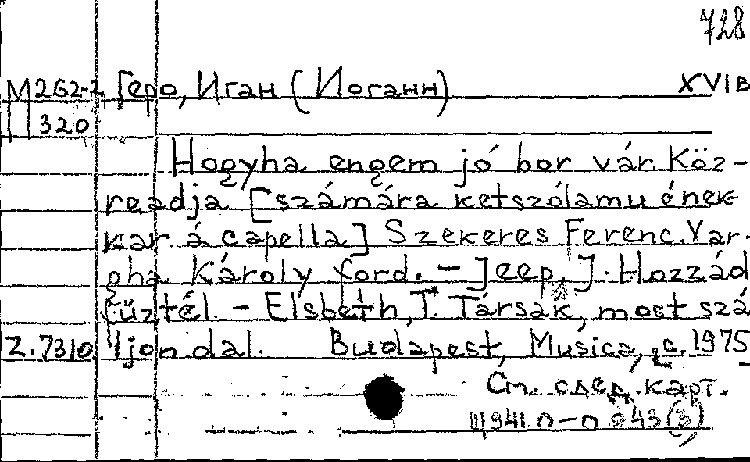 728
М 262-2 Геро, Иган (Иоганн) XVI в
П 320
Hogyha engem jó bor vár. Köz-
readja [számára ketszólamu ének-
kar á capella] Szekeres Ferenc. Var-
gha Károly ford. – Jeep, J. Hozzád
fűztél. – Elsbeth, T. Társak, most szá
Z.7310 ljon dal. Budapest, Musica, c. 1975
См. след. карт.